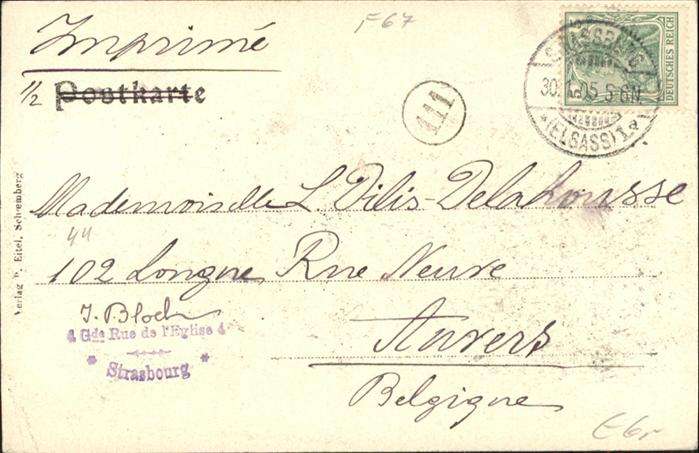 Imprimé
F 67
1/2 Postkarte
111
STRASSBURG
5-6N
*(ELSASS) 1.e
DEUTSCHES REICH
Mademoiselle L Dilis-Delahousse
44
102 Longue Rue Neuve
J. Bloch
4 Gde Rue de l'Eglise 4
* Strasbourg *
Anvers
Belgique
Verlag v. Eitel,